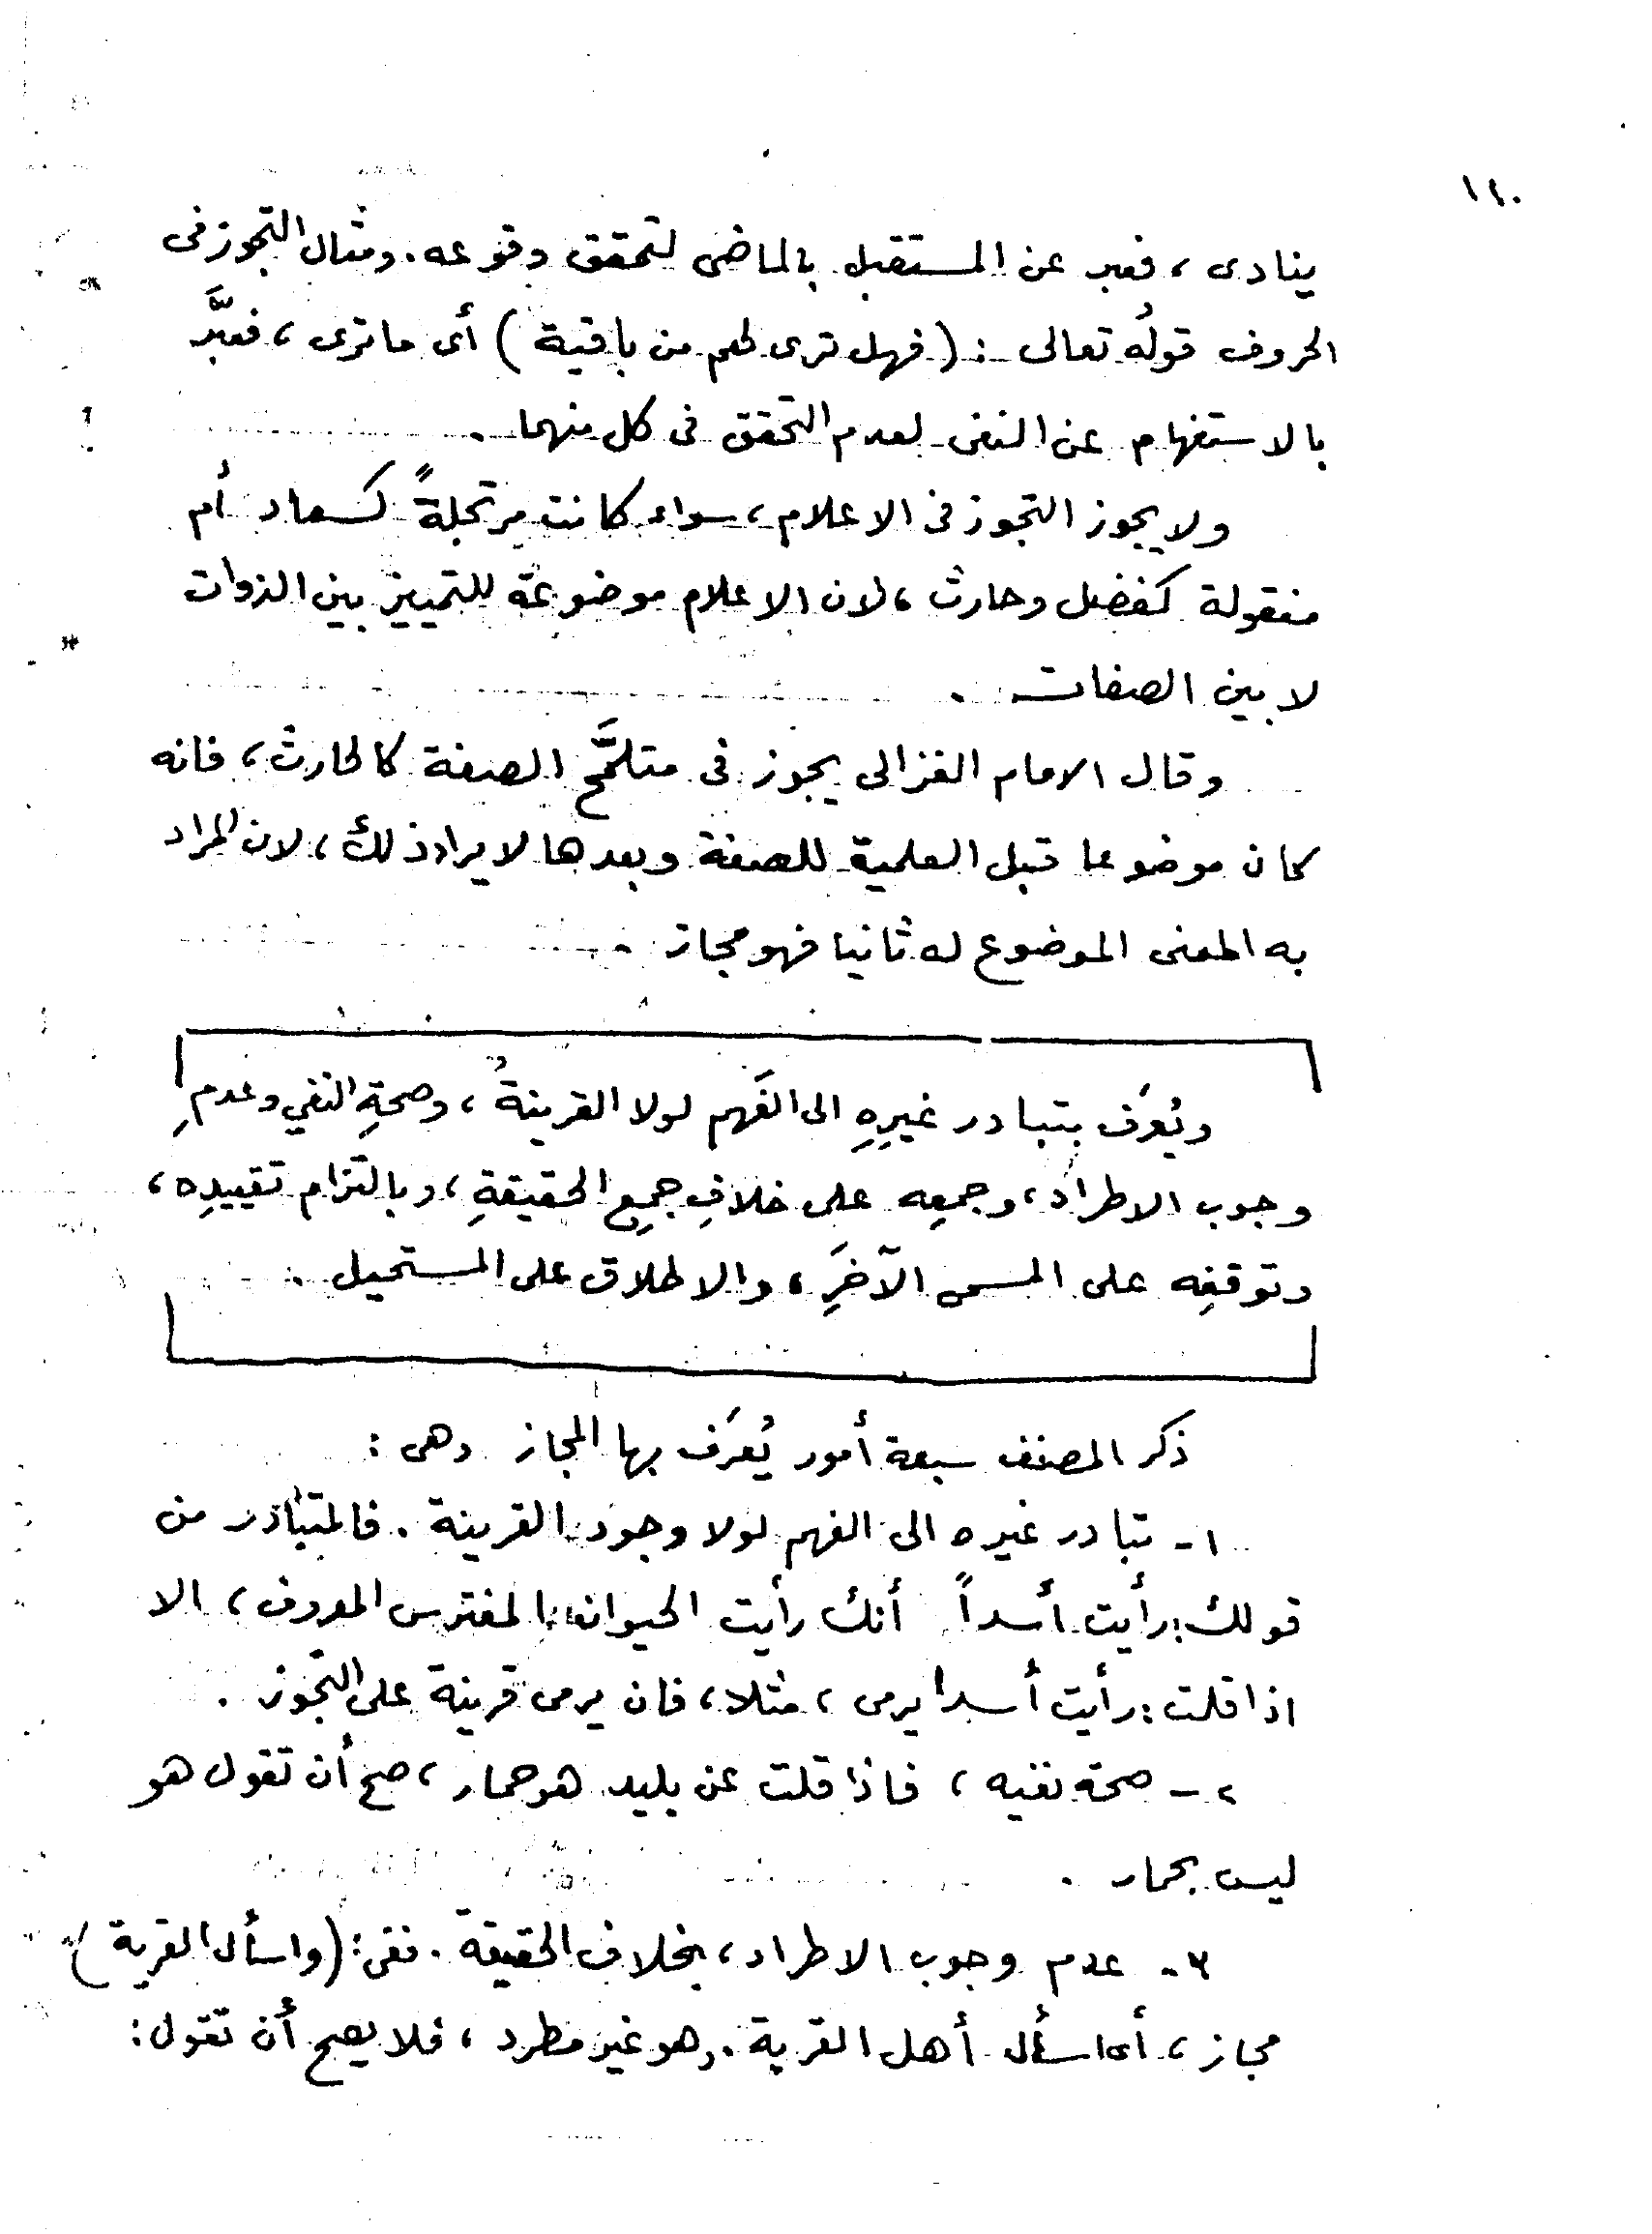 ١١٠
ينادى ، فعبر عن المستقبل بالماضى لتحقق وقوعه. ومثال التجوز فى
الحروف قولُه تعالى : (فهل ترى لهم من باقية ) أى ما ترى ، فعبَّر
بالاستفهام عن النفى لعدم التحقق فى كل منهما .
ولا يجوز التجوز فى الاعلام ، سواء كانت مرتجلةً كسعاد أم
منقولة كفضل وحارث ، لان الاعلام موضوعة للتمييز بين الذوات
لا بين الصفات .
وقال الامام الغزالى يجوز فى متلمَّح الصفة كالحارث ، فانه
كان موضوعا قبل العلمية للصفة وبعدها لا يراد ذلك ، لان المراد
به المعنى الموضوع له ثانيا فهو مجاز .
ويُعرَف بتبادر غيرِهِ الى الفَهم لولا القرينةُ ، وصحةِ النفي وعدمِ
وجوب الاطراد ، وجمعِه على خلافِ جمعِ الحقيقةِ ، وبالتزام تقييدِه ،
وتوقفِه على المسمى الآخَرِ ، والاطلاق على المستحيل .
ذكر المصنف سبعة أمور يُعرَف بها المجاز وهى :
١ - تبادر غيره الى الفهم لولا وجود القرينة . فالمتبادر من
قولك : رأيت أسداً أنك رأيت الحيوان المفترس المعروف ، الا
اذا قلت : رأيت أسدا يرمى ، مثلا ، فان يرمى قرينة على التجوز .
٢ - صحة نفيه ، فاذا قلت عن بليد هو حمار ، صح أن تقول هو
ليس بحمار .
٣ - عدم وجوب الاطراد ، بخلاف الحقيقة . ففى : (واسأل القرية )
مجاز ، أى اسأل أهل القرية . وهو غير مطرد ، فلا يصح أن تقول :